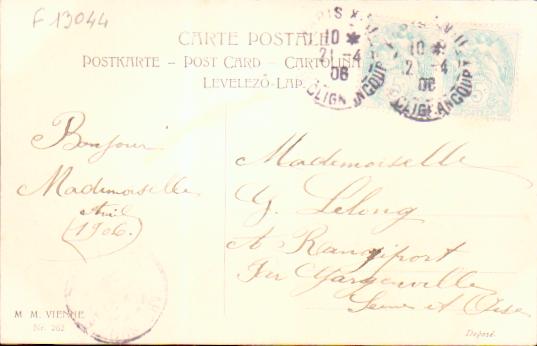 F 13044
CARTE POSTALE
POSTKARTE – POST CARD – CARTOLINA
LEVELEZŐ-LAP
PARIS XVIII
10
21-4
06
CLIGNANCOURT
10
21-4
06
CLIGNANCOURT
Bonjour
Mademoiselle
Avril
(1906.)
Mademoiselle
G. Lelong
A Rangiport
Par Gargenville
Seine et Oise
M. M. VIENNE
Nr. 262
Deposé.